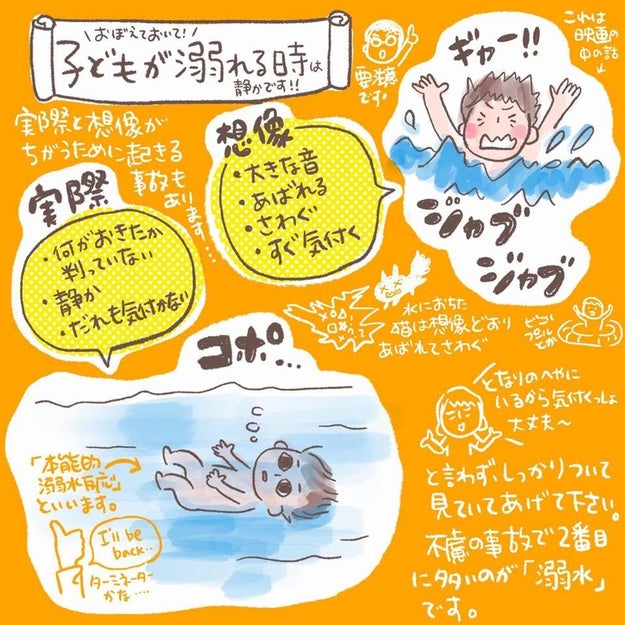 \おぼえておいて!/
子どもが溺れる時は
静かです!!
要注意
です
これは
映画の
中の話
↓
ギャー!!
実際と想像が
ちがうために起きる
事故も
あります…
想像
・大きな音
・あばれる
・さわぐ
・すぐ気付く
実際
・何がおきたか
判っていない
・静か
・だれも気付かない
ジャブ
ジャブ
水におちた
猫は想像どおり
あばれてさわぐ
プールとか
コポ…
となりのへやに
いるから気付くっしょ
大丈夫〜
と言わず、しっかりついて
見ていてあげて下さい。
不慮の事故で2番目
に多いのが「溺水」
です。
「本能的
溺水反応」
といいます。
I'll be
back…
ターミネーター
かな….